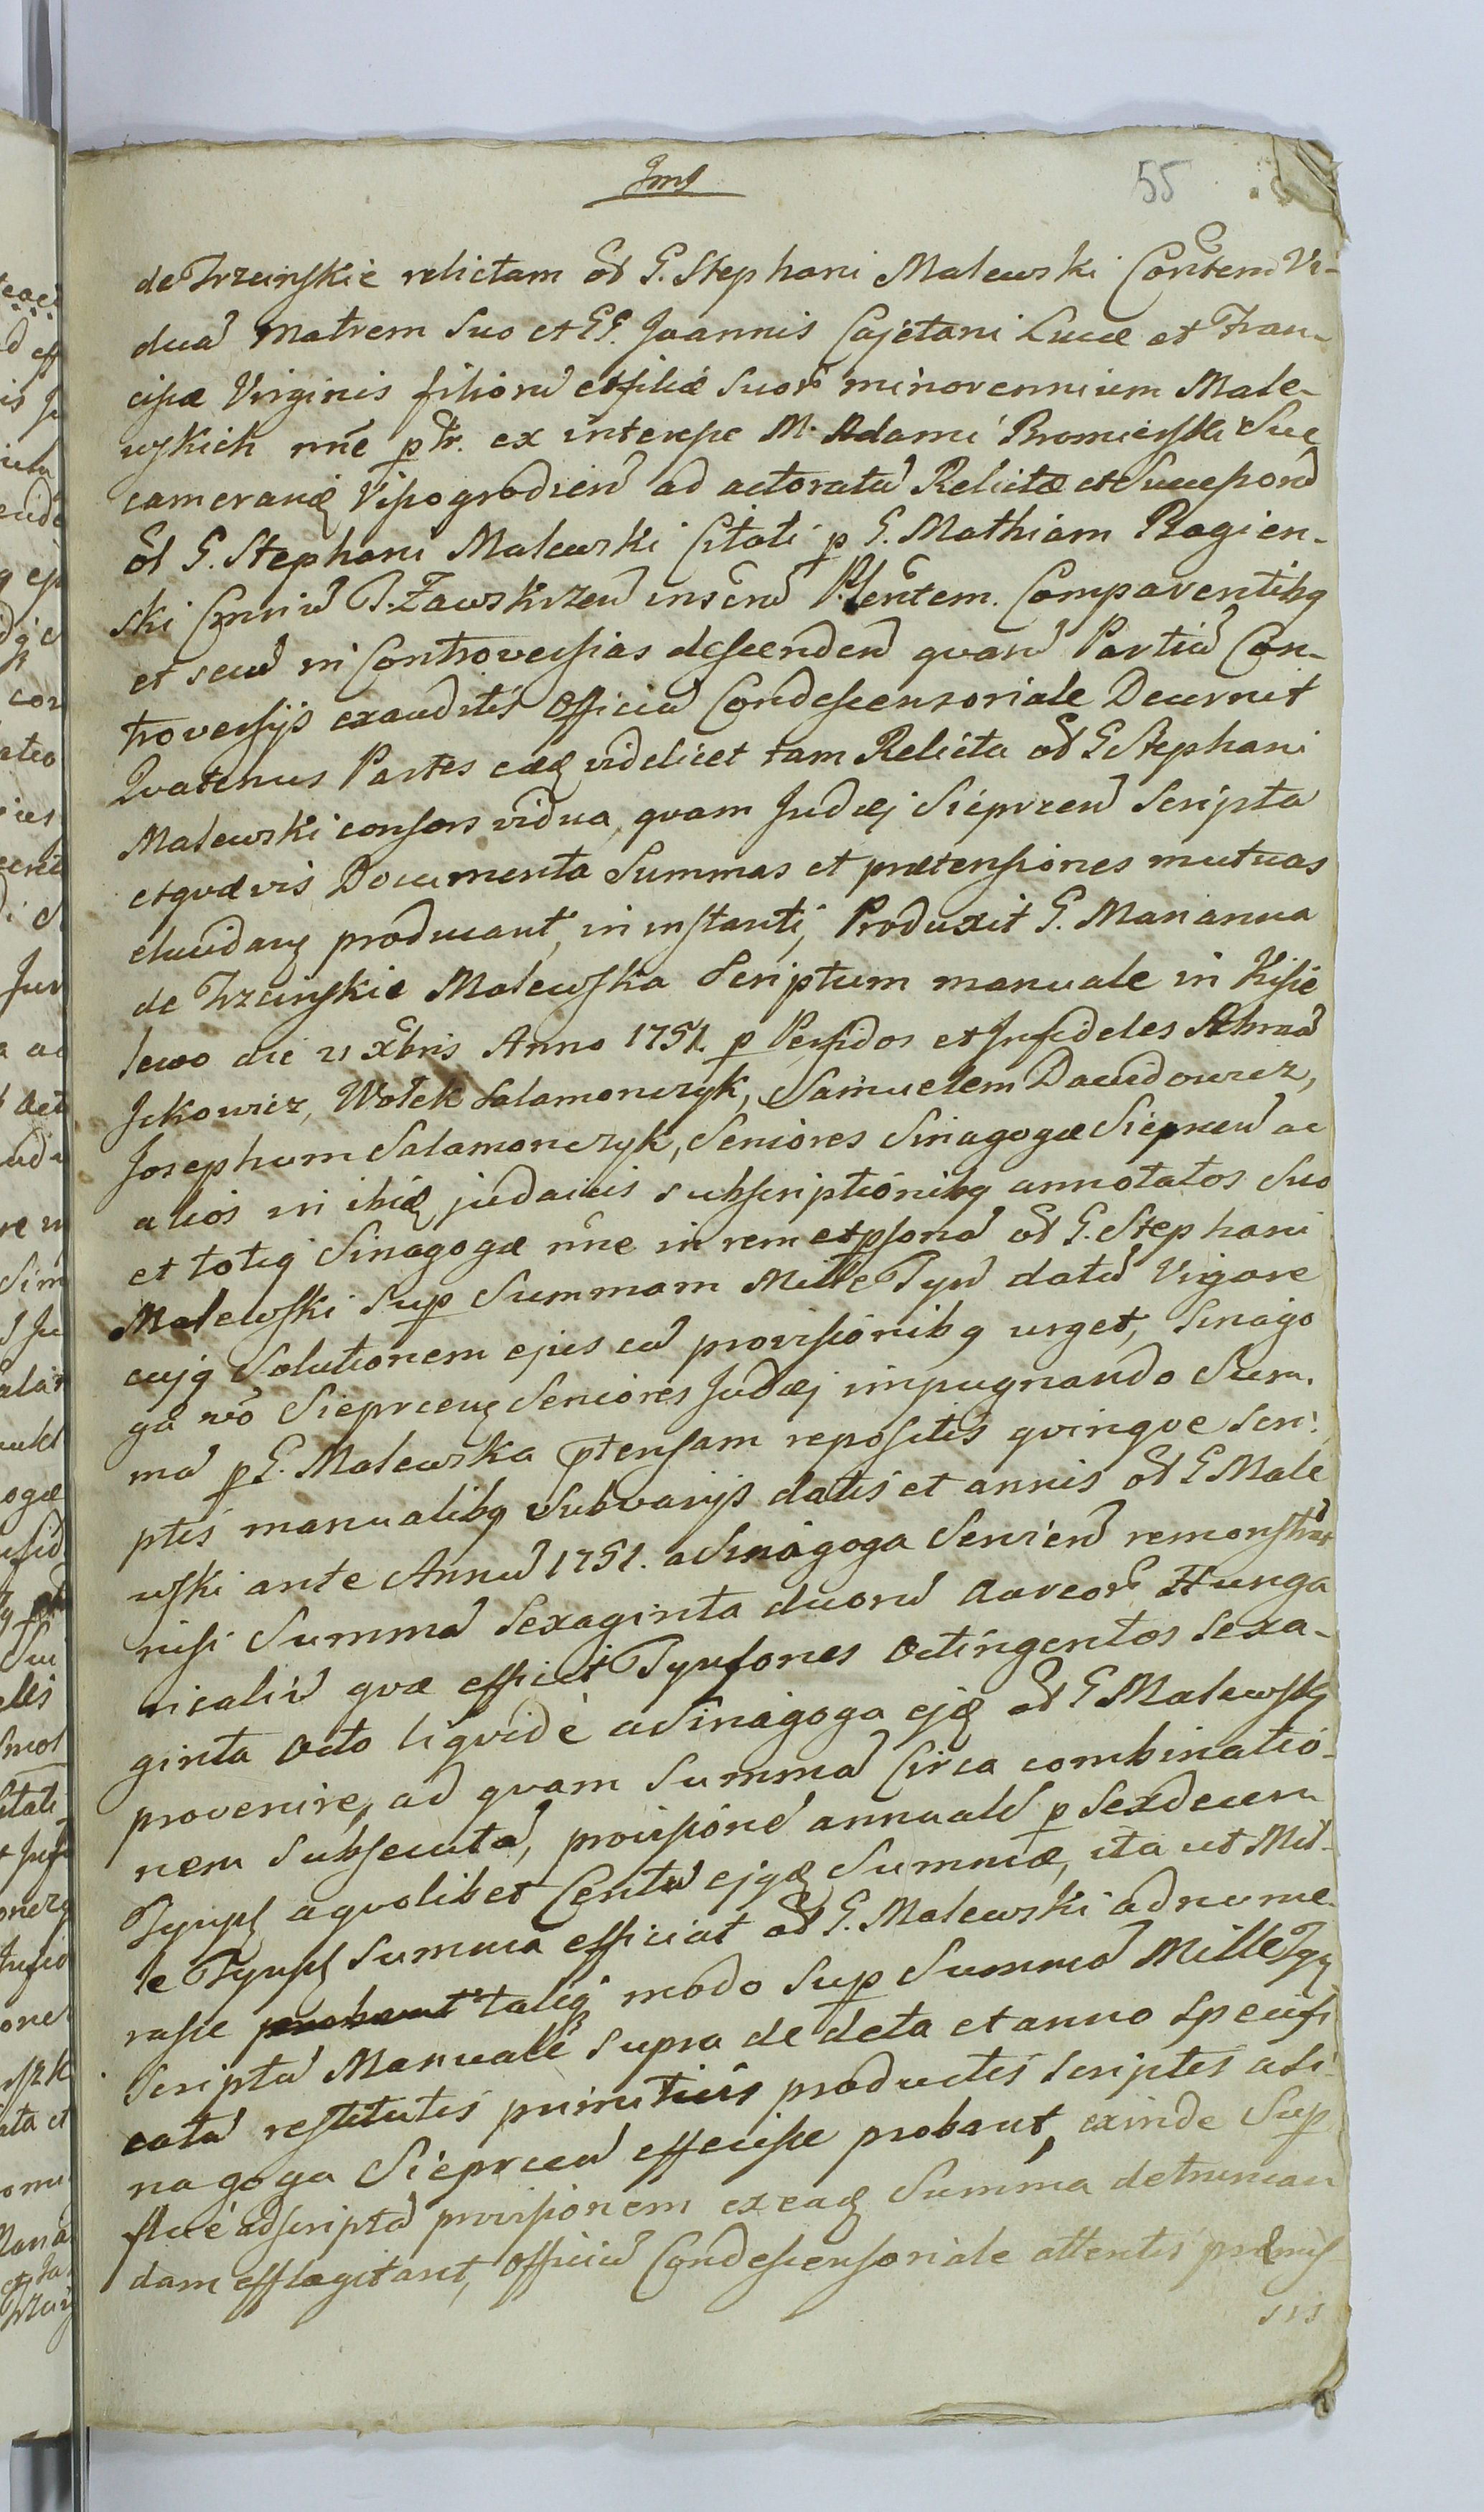 55
de Trzcinskie relictam od G. Stephani Malewski Consten Vi-
dua Matrem Suo et GG. Joannis Cajetani Lucæ et Fran-
cisæ Virginis filiorũ et filiæ Suor minorennium Male-
wskich nñe ptr. ex interesse M. Adami Bromierski Suc
cameranej Vissogrodien ad actoratũ Relictæ et Successorũ
od G. Stephani Malewski Citati p G. Mathiam Ragien-
ski T. Zawskrzen Comparentibq
et secũ in Controversias descenden quarũ Partiũ Con-
troversijs exauditis Officiũ Condescensoriale Decernit
Quatenus Partes eæq videlicet tam Relicta od G Stephani
Malewski consors vidua, quam Judæj Sieprzen Scripta
et quævis Documenta Summas et prætensiones mutuas
elucidanq producant, in instanti, Produxit G. Marianna
de Trzcinskie Malewska Scriptum manuale in Kisie
lewo die 21 xbris Anno 1751. p Perfidos et Infideles Abrã
Jckowicz, Wolek Salamonczyk, Samuelem Dawidowicz,
Josephum Salamonczyk, Seniores Sinagogæ Sieprcen ac
alios in ibiq judaicis subscriptionibq annotatos Suo
et totiq Sinagogæ nñe in rem et psonã od G. Stephani
Malewski Sup Summam Mille Tyn datũ Vigore
cujq Solutionem ejus cũ provisionibq urget, Sinago
ga vo Sieprcenq Seniores Judæj impugnando Sum.
mã p G. Malewska ptensam repositis quinque scri:
ptis manualibq Sub varijs datis et annis od G Male
wski ante Annũ 1751. a Sinagoga Servien remonstrat
nisi Summã Sexaginta duorũ Aureor Hunga
ricaliũ quæ efficit Tynfones Octingentos Sexa-
ginta Octo liquidè a Sinagoga ejq od G Malewski
provenire, ad quam Summã Circa combinatio-
nem Subsecutã, provisionẽ annualẽ p Sexdecem
Tynf a quolibet Centũ ejqæ Summæ, ita ut Mil-
le Tynf Summa efficiat od G. Malewski adnume-
rasse probant taliq modo Sup Summã Mille Ty
Scriptũ Manuale Supra de data et anno Specifi
catũ restitutis primitivis productis scriptis a Si-
nagoga Sieprcen effecisse probant, exinde Sup
flue adscriptã provisionem ex eaq Summa detruncan
dam efflagitant, Officiũ Condescensoriale attentis præmis
sis